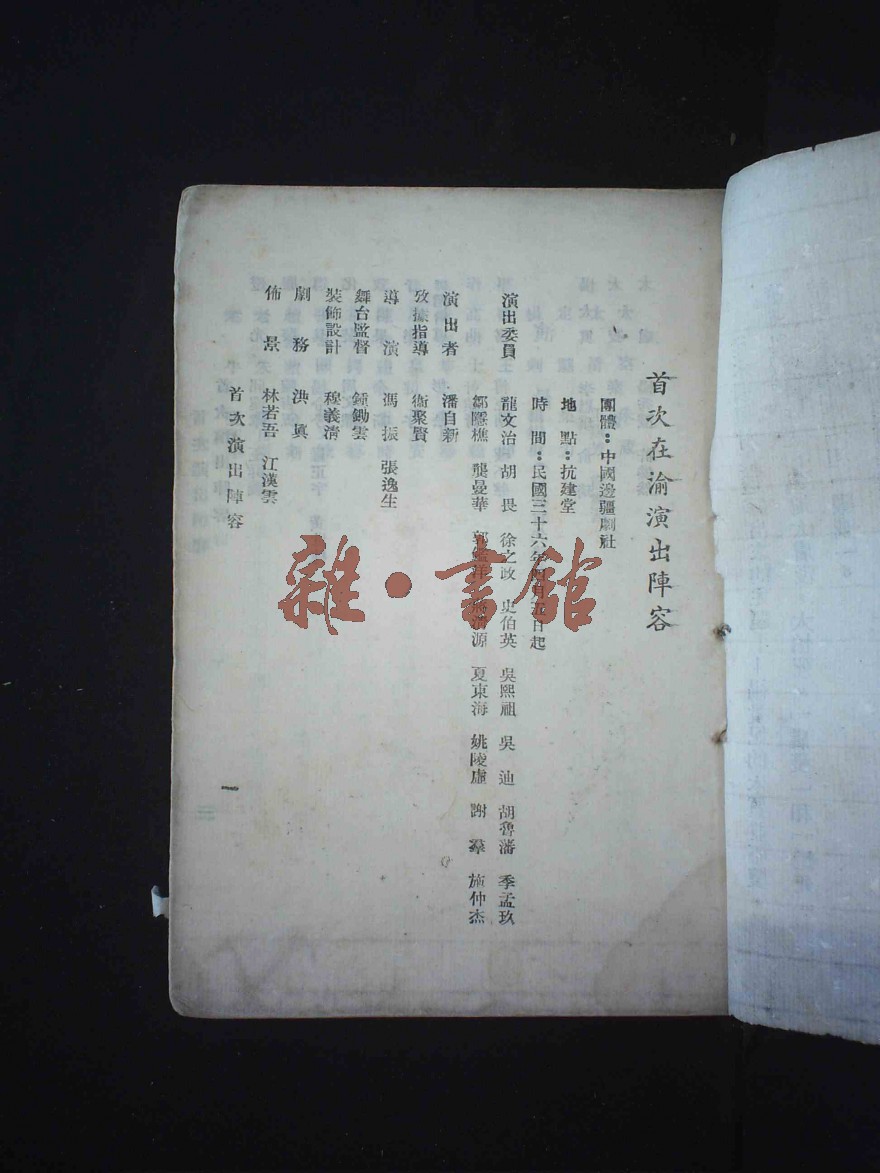 首次在渝演出陣容
團體：中國邊疆劇社
地點：抗建堂
時間：民國三十六年四月五日起
演出委員 龍文治 胡畏 徐之政 史伯英 吳熙祖 吳迪 胡魯潘 季孟玖
鄒隱樵 龔曼華 郭 源 夏東海 姚陵虛 謝羣 施仲杰
演出者 潘自新
攷據指導 衞聚賢
導演 馮振 張逸生
舞台監督 鍾鋤雲
裝飾設計 穆義清
劇務 洪興
佈景 林若吾 江漢雲
首次演出陣容
一
雜·書館